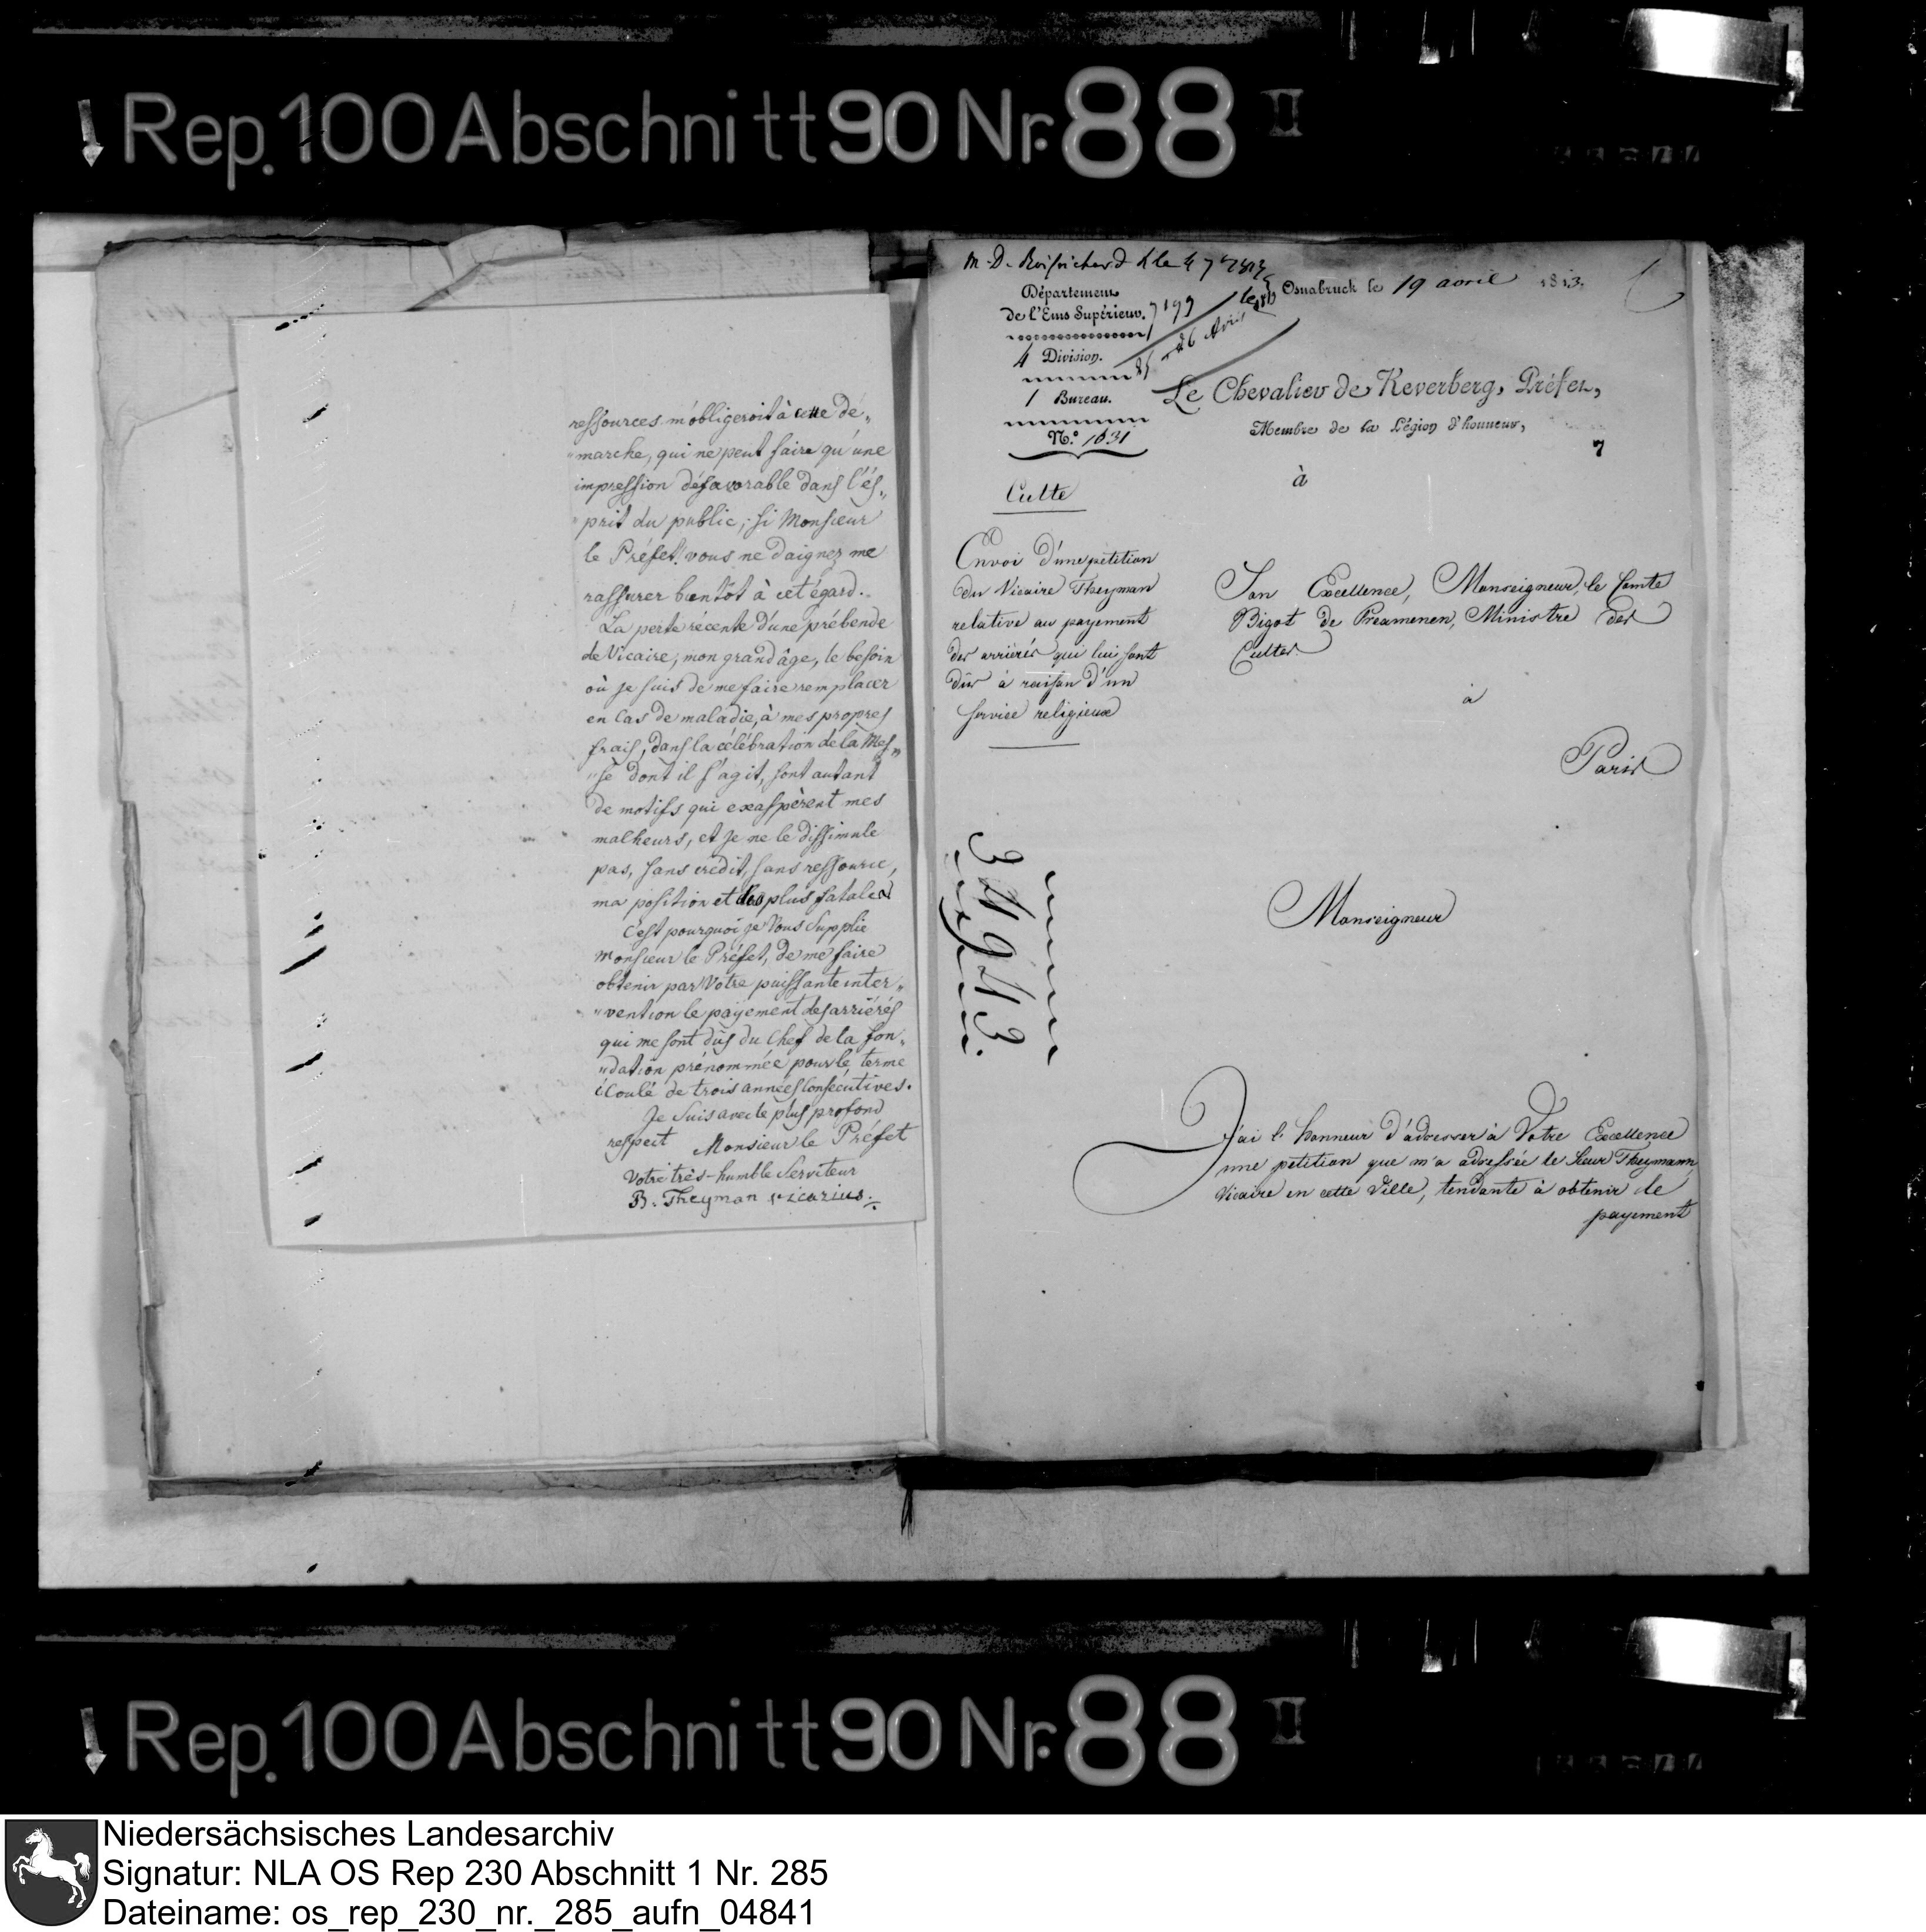 Rep. 100 Abschnitt 90 Nr. 88 II
ressources m'obligeroit à cette dé„
„marche, qui ne peut faire qu'une
impression défavorable dans l'és„
„prit du public; si Monsieur
le Préfet! vous ne daignez me
rassurer bientôt à cet égard.
La perte récente d'une prébende
de Vicaire, mon grand âge, le besoin
où je suis de me faire remplacer
en Cas de maladie, à mes propres
frais, dans la célébration de la Mes„
„se dont il s'agit, sont autant
de motifs qui exaspèrent mes
malheurs, et je ne le dissimule
pas, sans crédit, sans ressource,
ma position et plus fatale
C'est pourquoi je Vous Supplie
Monsieur le Préfet, de me faire
obtenir par Votre puissante inter„
„vention le payement des arriérés
qui me sont dûs du Chef de la fon„
„dation prénommée pour le terme
écoulé de trois années Consécutives.
Je Suis avec le plus profond
respect Monsieur le Préfet
Votre très-humble Serviteur
B. Theyman vicarius.
Département
de l'Ems Supérieur.
4 Division.
1 Bureau.
N.º 1631
7199
26 Avril
Culte
Envoi d'une pétition
du Vicaire Theyman
relative au payement
des arriérés qui lui sont
dûs à raison d'un
service religieux
34943.
Osnabruck le 19 avril 1813.
Le Chevalier de Keverberg, Préfet,
Membre de la Légion d'honneur,
7
à
Son Excellence, Monseigneur, le Comte
Bigot de Préamenen, Ministre des
Cultes
à
Paris
Monseigneur
J'ai l'honneur d'adresser à Votre Excellence
une pétition que m'a adressée le Sieur Theymann
Vicaire en cette Ville, tendante à obtenir le
payement
Rep. 100 Abschnitt 90 Nr. 88 II
Niedersächsisches Landesarchiv
Signatur: NLA OS Rep 230 Abschnitt 1 Nr. 285
Dateiname: os_rep_230_nr._285_aufn_04841